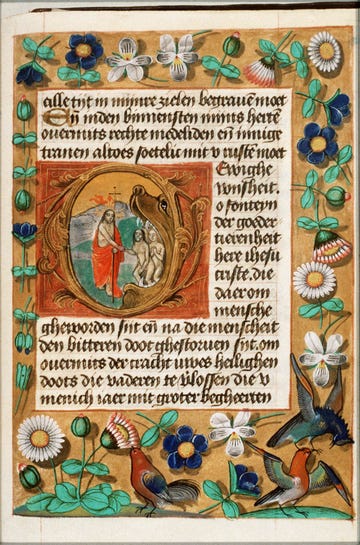 alle tijt in mijnre zielen begrauē moet
Eñ inden binnensten mijns herte
ouermits rechte medeliden eñ innige
tranen altoes soetelic mit v rustē moet
Ewighe
wijsheit.
o fonteyn
der goeder
tierenheit
here ihesu
criste. die
daer om
mensche
gheworden sijt eñ na die menscheit
den bitteren doot ghestoruen sijt. om
ouermits der cracht uwes heilighen
doots die vaderen te v̾lossen die v
menich iaer mit groter begheerten